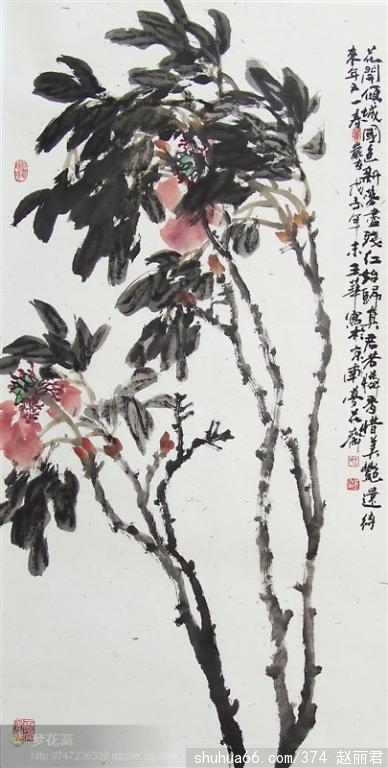 花開傾城國色新落盡殘仁始歸真君若憐香惜美艷還待
來年又一春
戊子年末王華寫於京南夢花齋
梦花斋
http://747236339.qzone.qq.com
shuhua66.com/374 赵丽君